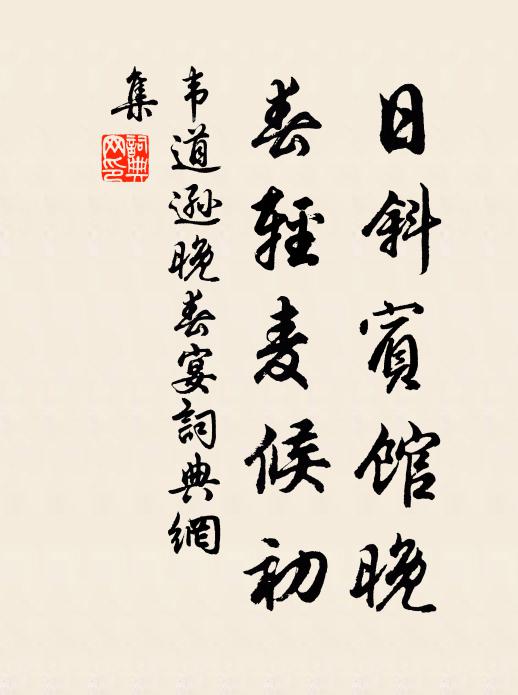 日斜賓館晚
春輕麦候初
韦道遜晚春宴詞典網
集
詞典网印